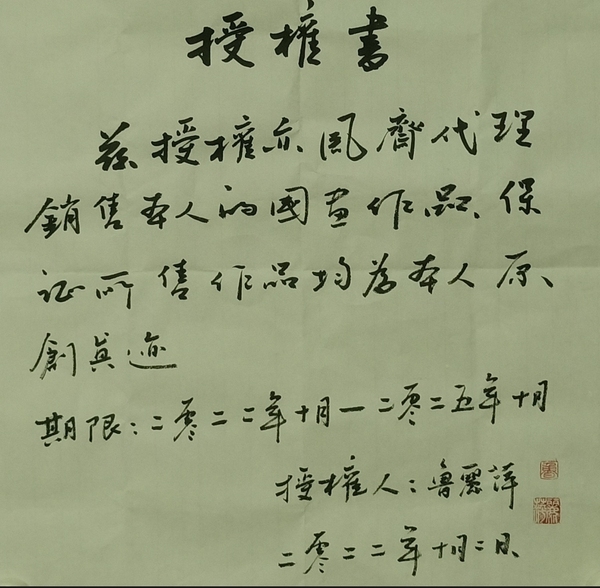 授權書
茲授權亦風齋代理
銷售本人的國畫作品、保
证所售作品均為本人原、
創真迹
期限：二零二二年十月一二零二五年十月
授權人：魯麗萍
二零二二年十月二日